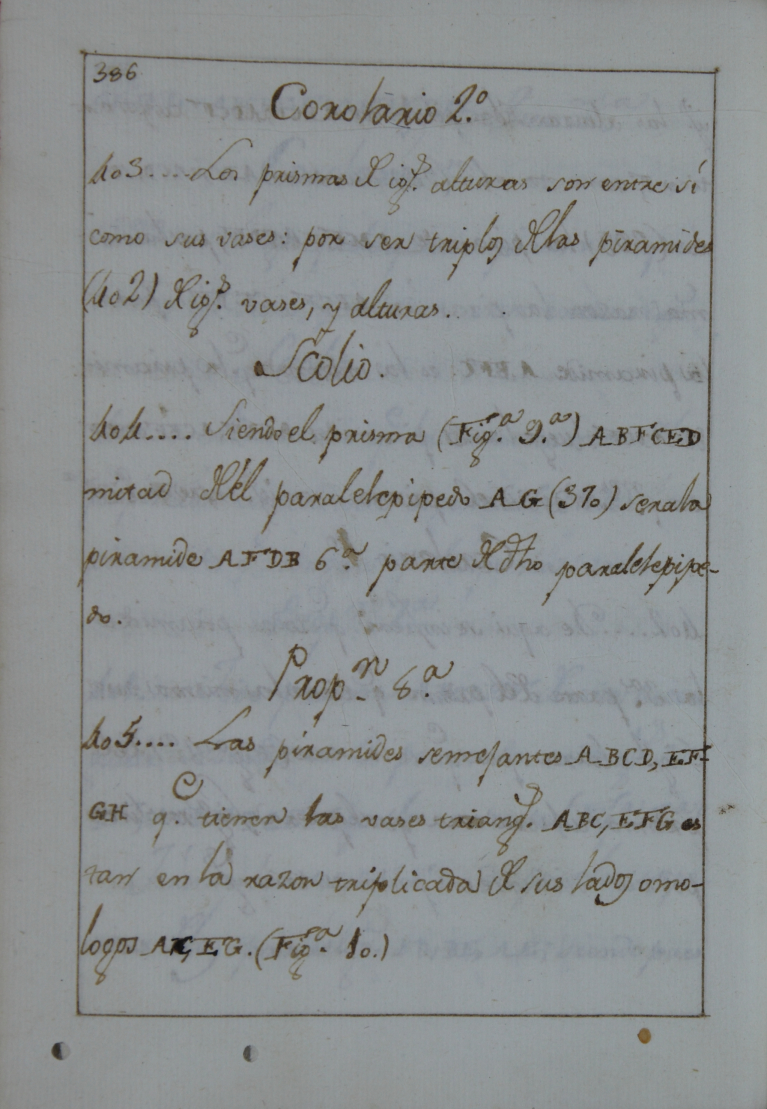 386
Corolario 2.º
403.... Los prismas de ig.s alturas son entre sí
como sus vases: por ser triplos de las piramides
(402) de ig.s vases, y alturas.
Scolio.
404.... Siendo el prisma (Fig.ª 9.ª) ABFCED
mitad del paralelepipedo AG (370) sera la
piramide AFDB 6.ª parte de dho paralelepipe-
do.
Prop.n 8.ª
405.... Las piramides semejantes ABCD, EF-
GH q.e tienen las vases triang.s ABC, EFG es
tan en la razon triplicada de sus lados omo-
logos AC, EG. (Fig.ª 10.)